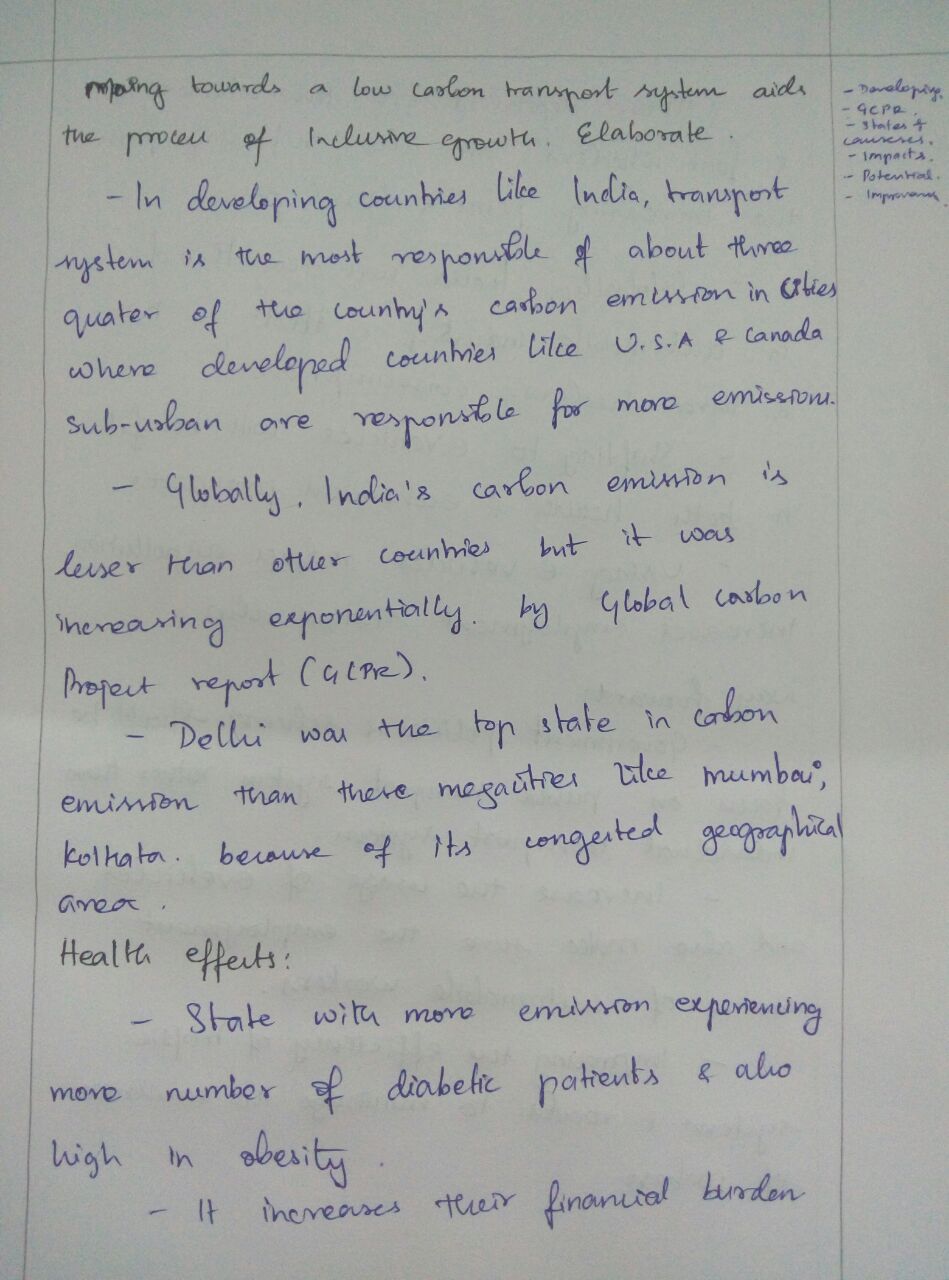 moving towards a low carbon transport system aids
the process of Inclusive growth. Elaborate.
- In developing countries like India, transport
system is the most responsible of about three
quater of the country's carbon emission in cities
where developed countries like U.S.A & Canada
sub-urban are responsible for more emissions.
- Globally, India's carbon emission is
lesser than other countries but it was
increasing exponentially. by Global carbon
Project report (GCPR).
- Delhi was the top state in carbon
emission than these megacities like mumbai,
Kolkata. because of its congested geographical
area.
Health effects:
- State with more emission experiencing
more number of diabetic patients & also
high in obesity.
- It increases their financial burden
- Developing.
- GCPR.
- States &
causeses.
- Impacts.
- Potential.